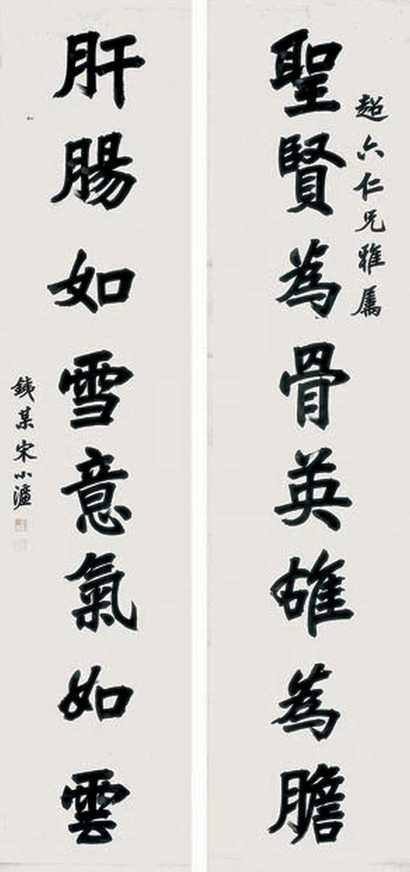 超六仁兄雅屬
聖賢為骨英雄為膽
肝腸如雪意氣如雲
鐵某宋小濂